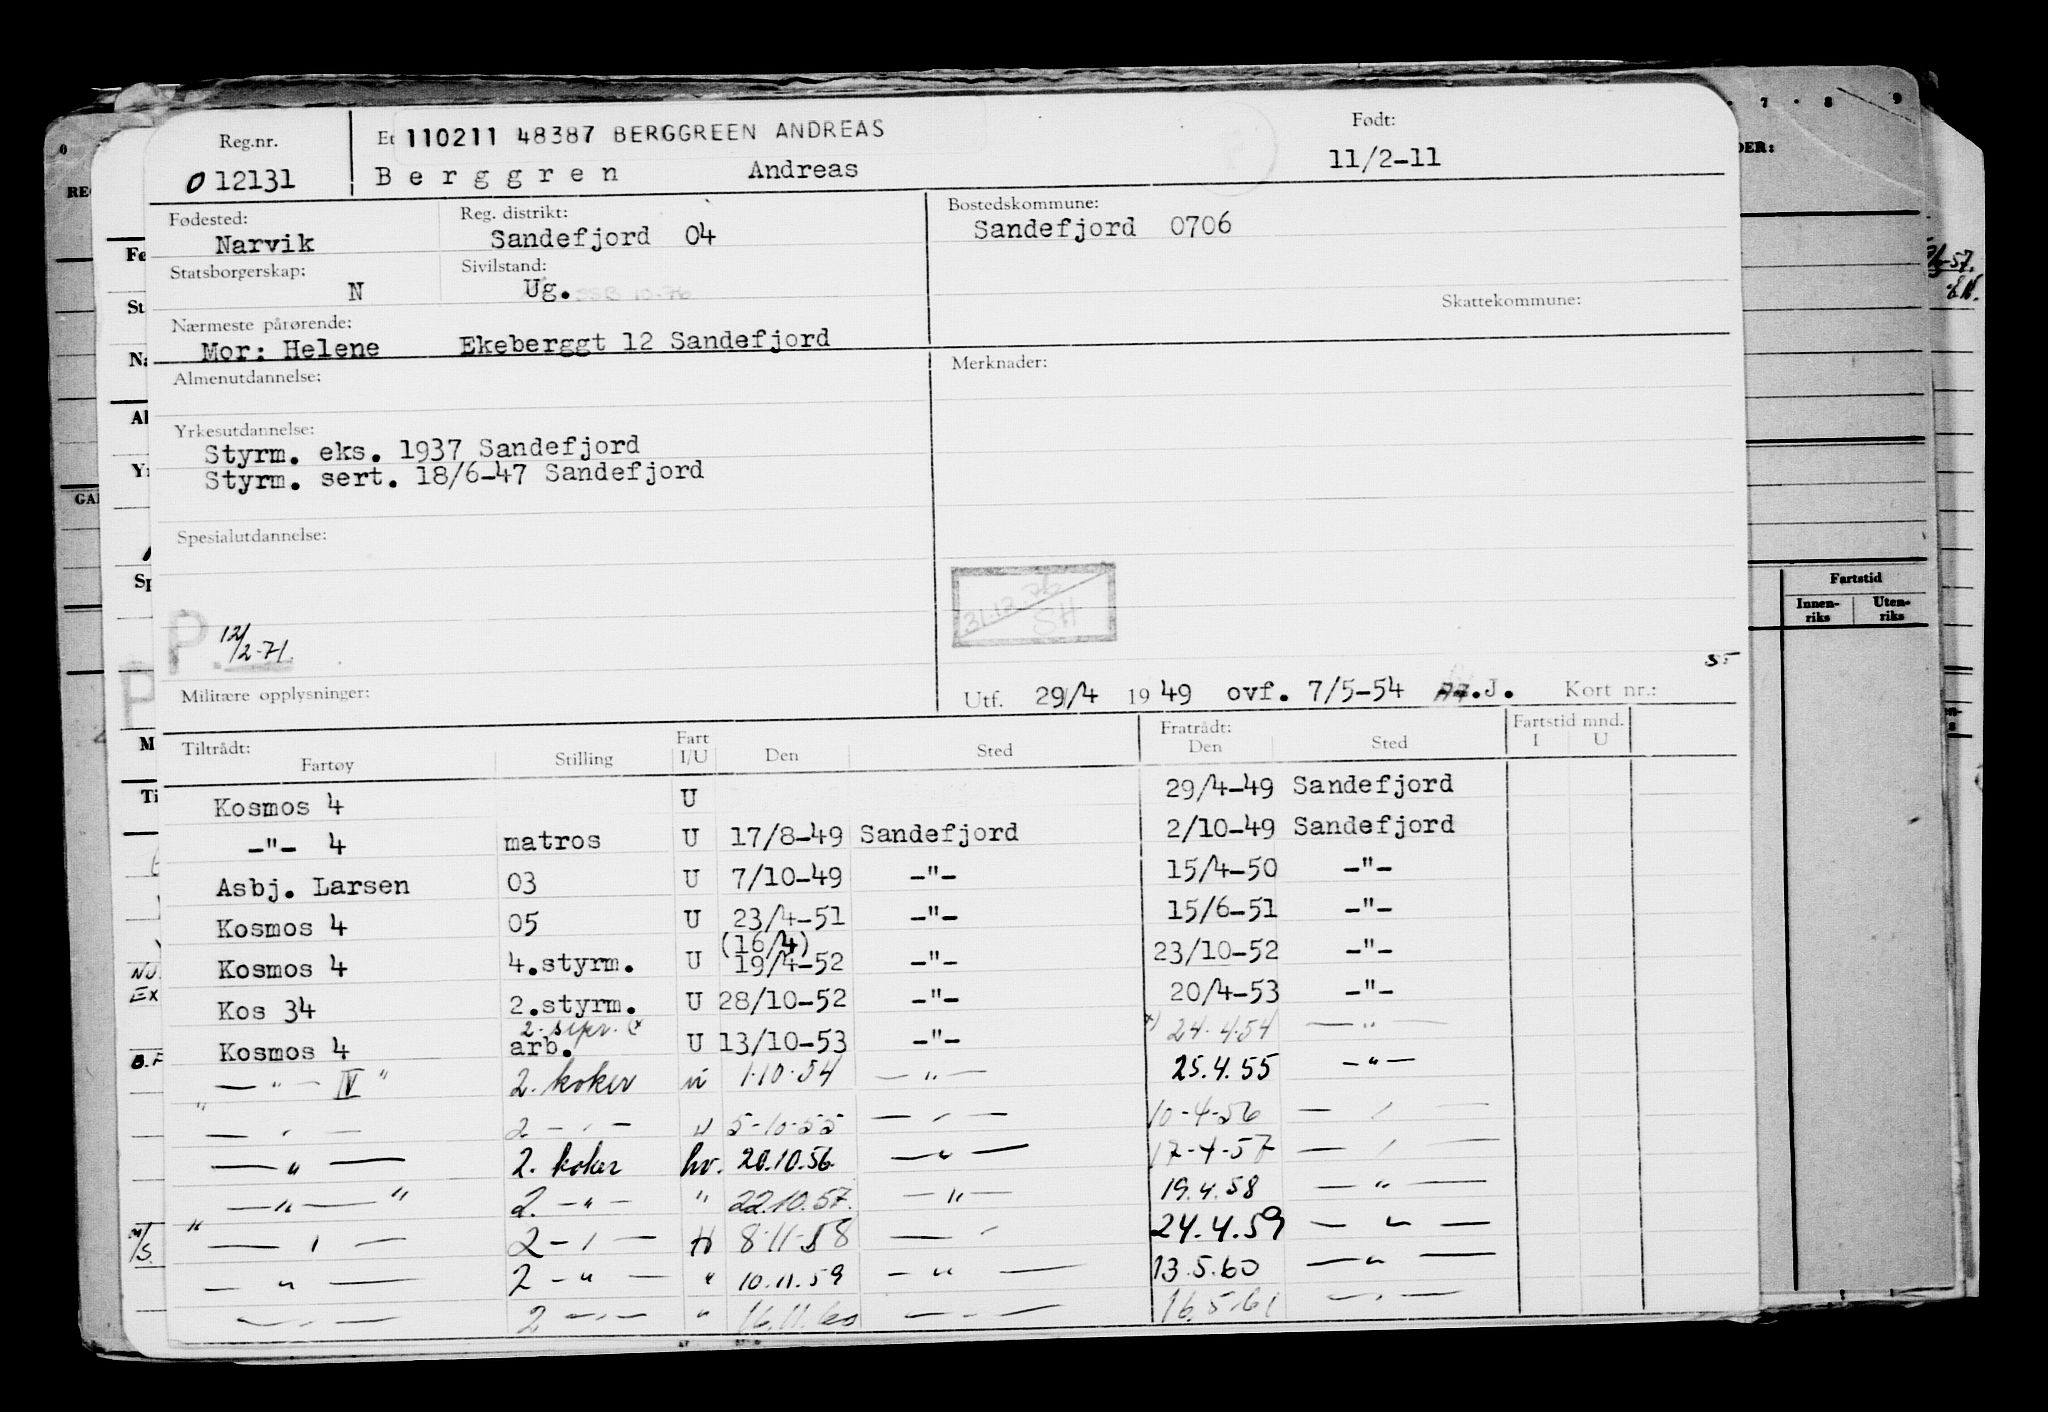 Reg.nr.
O 12131
Et 110211 48387 BERGGREEN ANDREAS
Berggren Andreas
Født:
11/2-11
Fødested:
Narvik
Reg. distrikt:
Sandefjord 04
Bostedskommune:
Sandefjord 0706
Statsborgerskap:
N
Sivilstand:
Ug.
Skattekommune:
Nærmeste pårørende:
Mor: Helene Ekeberggt 12 Sandefjord
Almenutdannelse:
Merknader:
Yrkesutdannelse:
Styrm. eks. 1937 Sandefjord
Styrm. sert. 18/6-47 Sandefjord
Spesialutdannelse:
31.12.76
SH
P. 12/2-71.
Militære opplysninger:
Utf. 29/4 1949 ovf. 7/5-54 .J. Kort nr.:
Tiltrådt: Fartøy Stilling Fart I/U Den Sted Fratrådt: Den Sted Fartstid mnd. I U
Kosmos 4 U 29/4-49 Sandefjord
-"- 4 matros U 17/8-49 Sandefjord 2/10-49 Sandefjord
Asbj. Larsen 03 U 7/10-49 -"- 15/4-50 -"-
Kosmos 4 05 U 23/4-51 -"- 15/6-51 -"-
(16/4)
Kosmos 4 4.styrm. U 19/4-52 -"- 23/10-52 -"-
Kos 34 2.styrm. U 28/10-52 -"- 20/4-53 -"-
Kosmos 4 arb. U 13/10-53 -"- x) 24.4.54 -"-
-"- IV" 2. koker 1.10.54 -"- 25.4.55 -"-
" -"- 2 -"- 5-10-55 -"- 10-4-56 -"-
-"- 2. koker hv. 20.10.56. -"- 17-4-57 -"-
-"- " 2. -"- " 22.10.57. -"- 19.4.58 -"-
" -"- 2 -"- H 8-11-58 -"- 24.4.59 -"-
-"- 2 -"- " 10.11.59 -"- 13.5.60 -"-
-"- 2 -"- " 16.11.60 -"- 16.5.61 -"-
7 · 8 9
DER:
Fartstid
Innen-riks
Uten-riks